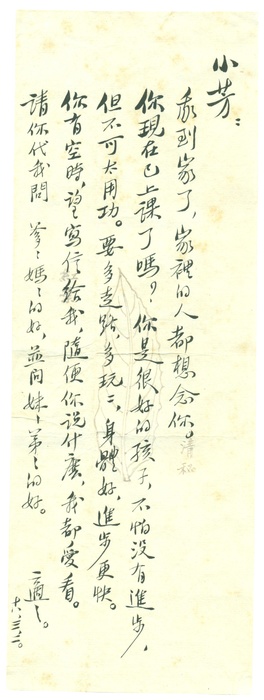 小芳：
我到家了，家裡的人都想念你。
你現在已上課了嗎？你是很好的孩子，不怕没有進步，
但不可太用功。要多走路，多玩玩，身體好，進步更快。
你有空時，望寫信給我，隨便你说什麽，我都愛看。
請你代我問 爹々媽々的好，並问妹々弟々的好。
适之。